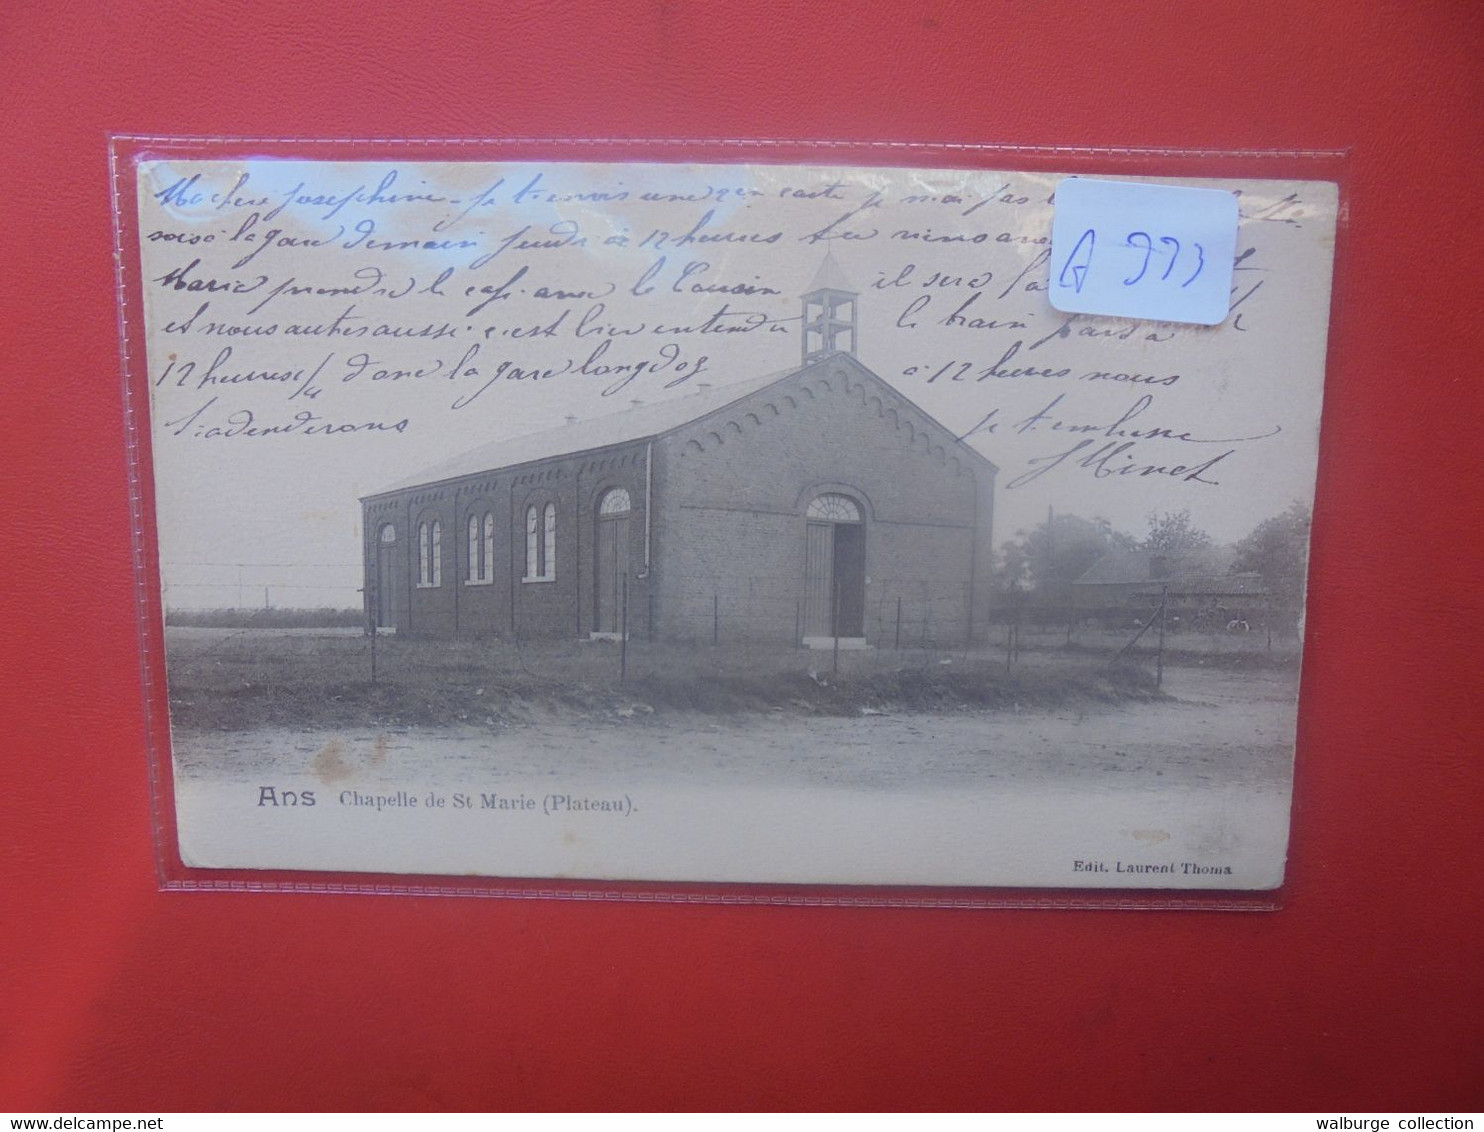 Ma chère Josephine je t'envois une qen carte je n'ai pas
sois à la gare demain jeudi à 12 heures tu viens avec
Marie prendre le café avec le Cousin il sera
et nous autres aussi c'est bien entendu le train pars à
12 heures donc la gare longdoz à 12 heures nous
t'adenderons je t'embrasse
Minet
A 993
Ans Chapelle de St Marie (Plateau).
Edit. Laurent Thoma
delcampe.net
walburge collection